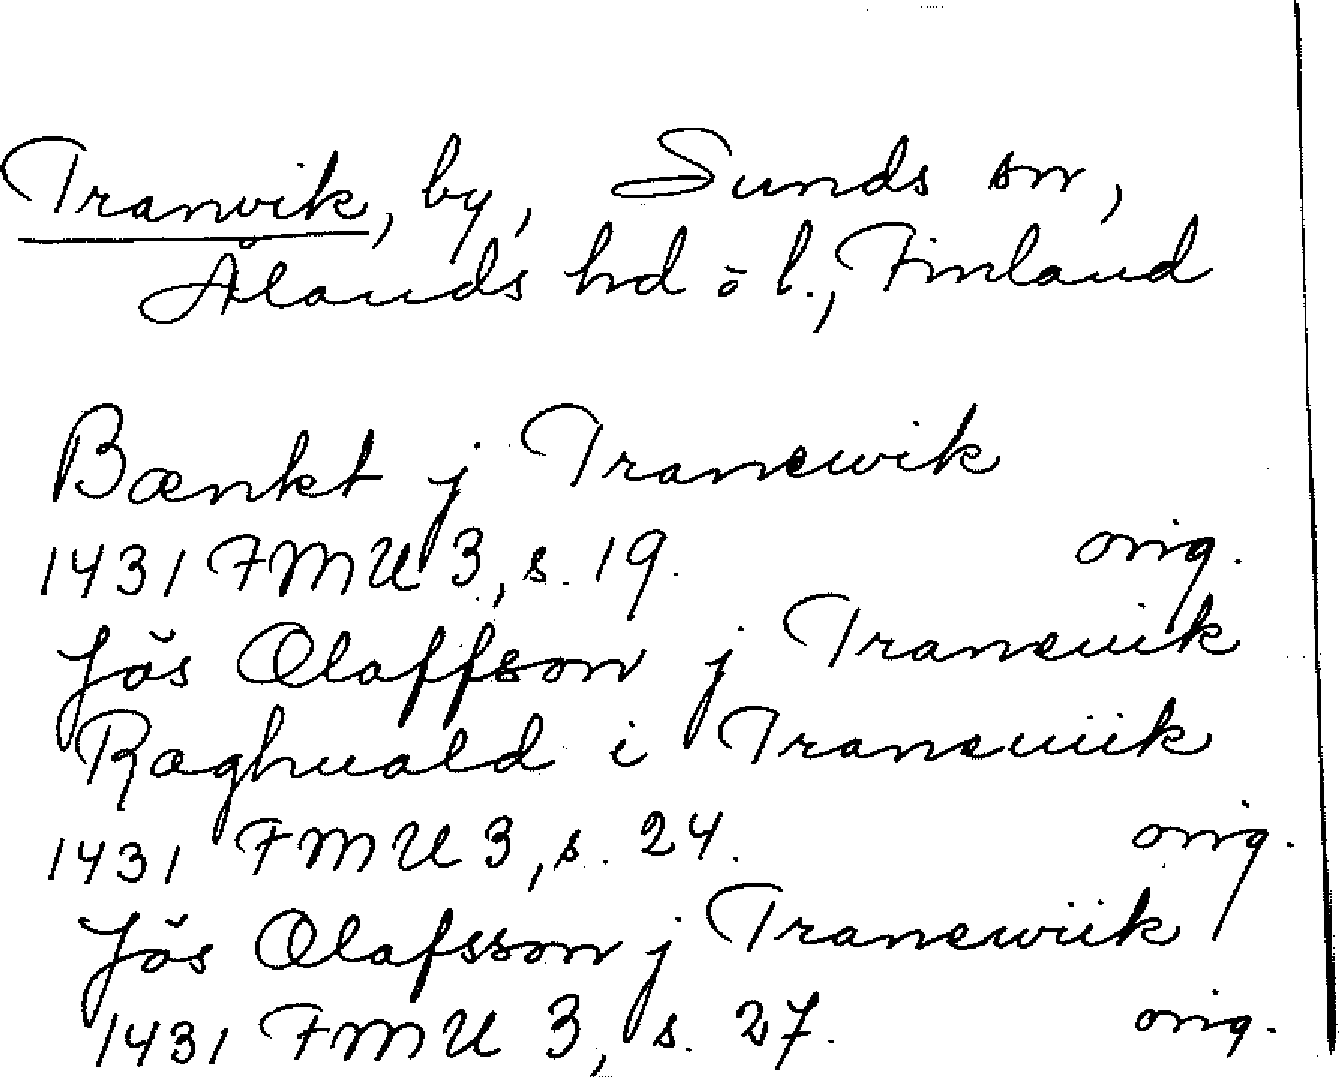 Tranvik, by, Sunds sn,
Ålands hd o l., Finland
Bænkt j Tranewik
1431 FMU 3, s. 19. orig.
Jős Olaffson j Traneuik
Raghuald i Traneuiik
1431 FMU 3, s. 24. orig.
Jős Olafsson j Tranewiik
1431 FMU 3, s. 27. orig.